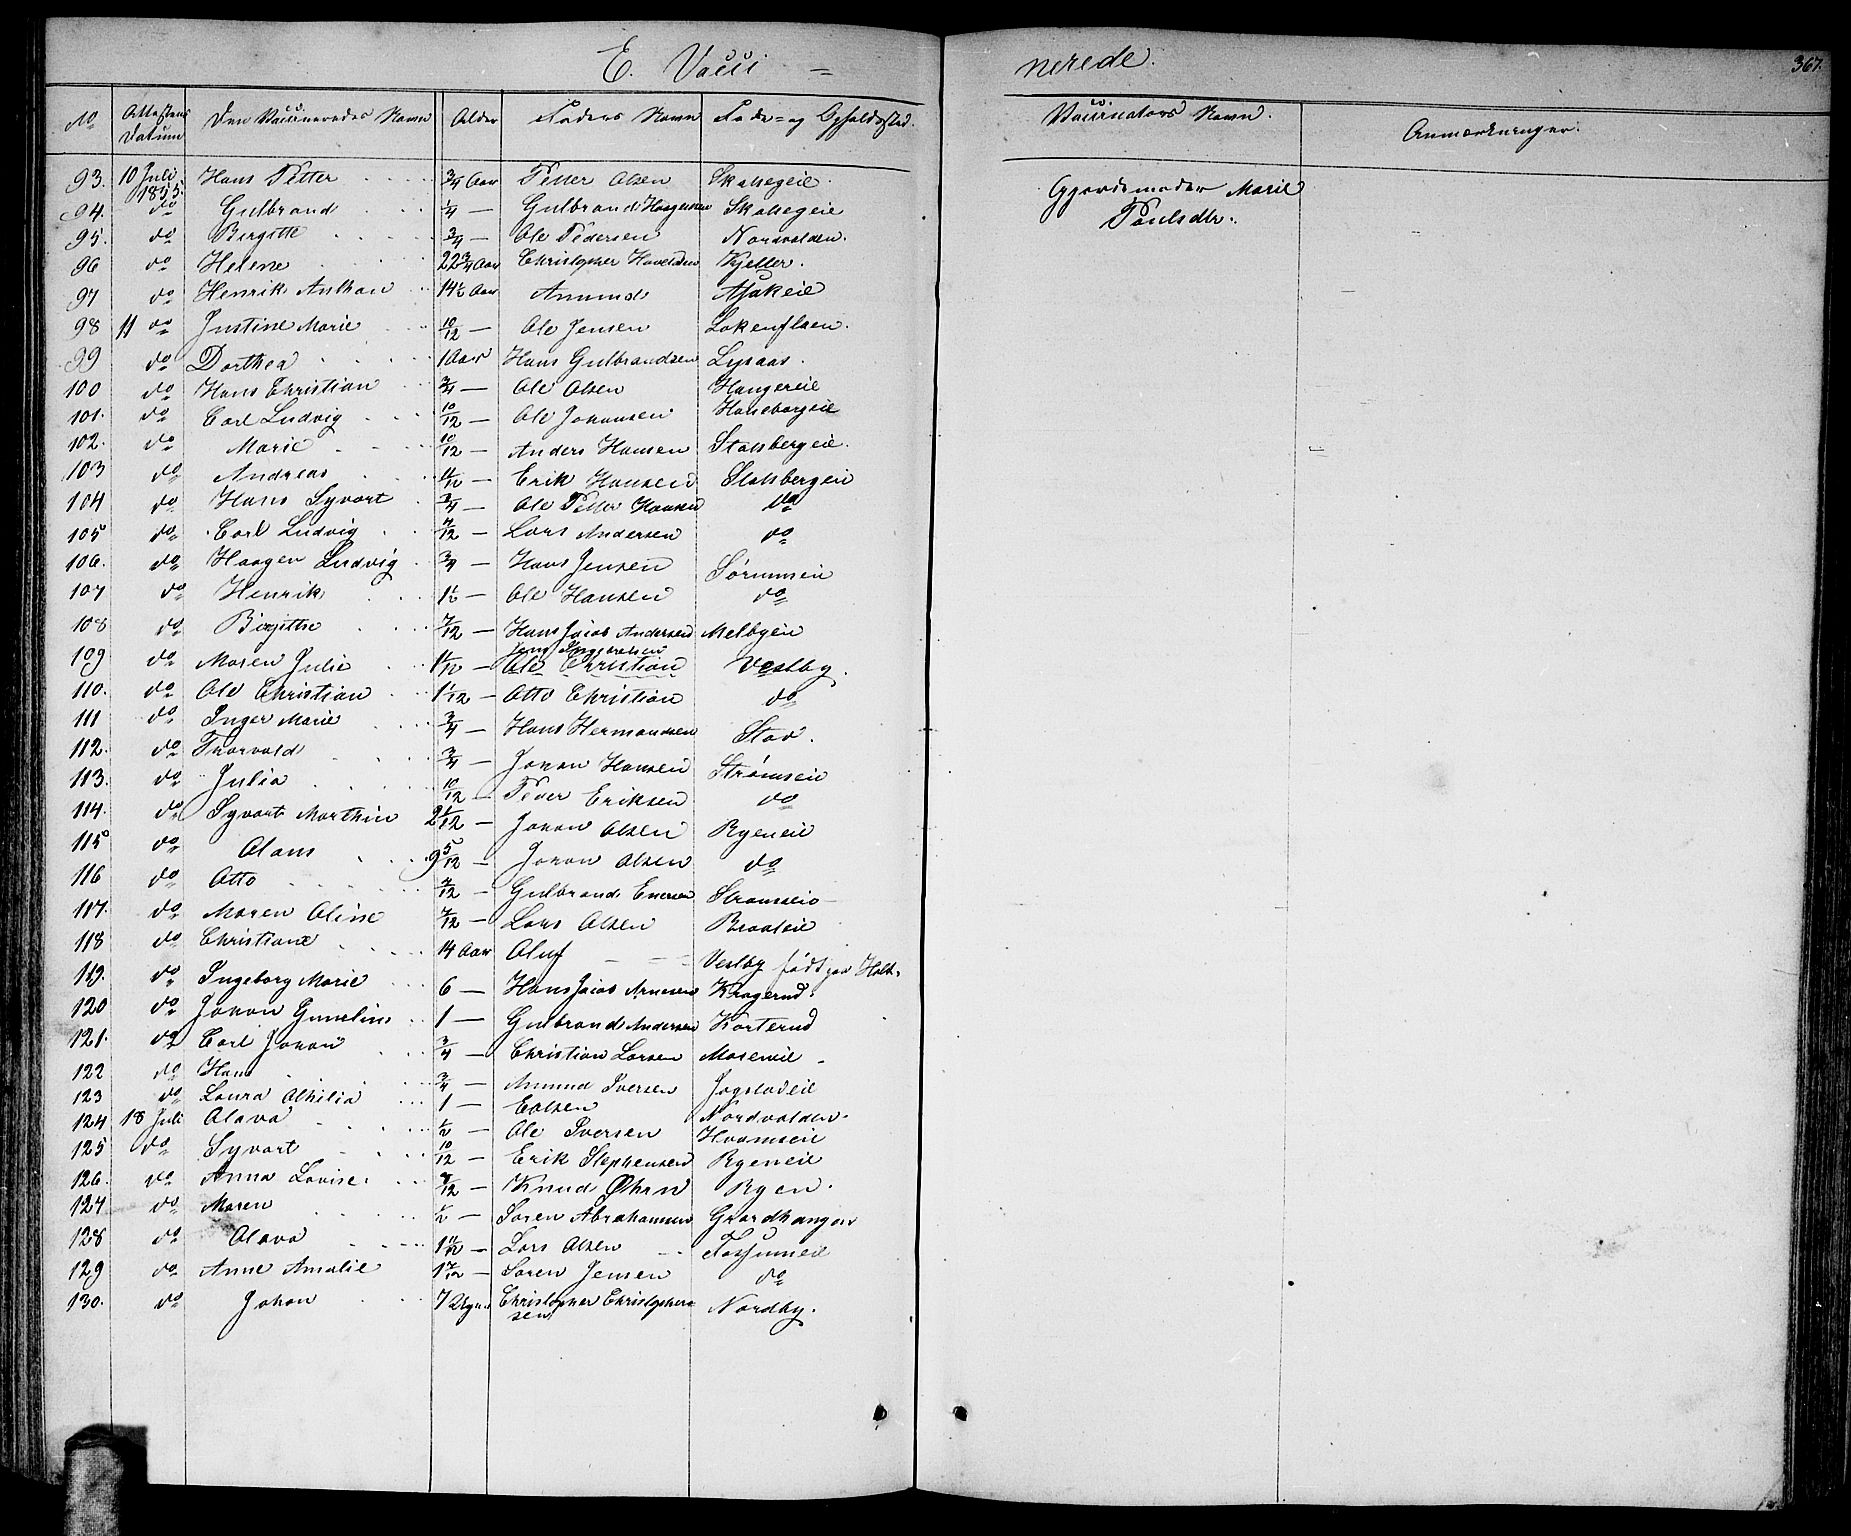 E. Vacci = nerede.
367.
No Attestens Datum Den Vaccineredes Navn Alder Faders Navn Føde- og Opholdssted. Vaccinators Navn. Anmærkninger.
93. 10 Juli 1855. Hans Petter 3/4 Aar Petter Olsen Gjordemoder Marie
94. do Gulbrand 1/4 — Gulbrand Haagensen Paulsdtr.
95. do Birgitte 3/4 — Ole Pedersen Nordvolden.
96 do Helene 22 3/4 Aar Christopher Kjeller.
97 do Henrik Anthon 14 1/2 Aar Amund Asakeie
98 11 do Justine Marie 10/12 — Ole Jensen
99 do Dorthea 1 Aar Hans Gulbrandsen Lysaas.
100 do Hans Christian 3/4 — Ole Olsen Haugereie
101. do Carl Ludvig 10/12 — Ole Johansen Haneborgeie
102. do Marie 10/12 — Anders Hansen Stalsbergeie.
103 do Andreas 11/12 — Erik Hansen Stalsbergeie
104 do Hans Syvert 3/4 — Ole Petter Hansen do
105 do Carl Ludvig 7/12 — Lars Andersen do
106. do Haagen Ludvig 3/4 — Hans Jensen Sørumseie
107 do Henrik 1 1/2 — Ole Hansen do
108 do Birgitte 7/12 — Hans Jacob Andersen Melbyeie
109 do Maren Julie 1 1/12 — Ole Christian Vestby.
110. do Ole Christian 1 1/12 — Otto Christian do
111 do Inger Marie 3/4 — Hans Hermandsen Stav.
112. do Thorvald 3/4 — Johan Hansen Strømseie
113. do Julia 10/12 — Peder Eriksen do
114. do Syvert Marthin 2 1/12 — Johan Olsen Ryeneie
115 do Olaus 9 5/12 — Johan Olsen do
116 do Otto 7/12 — Gulbrand Evensen Strømseie
117. do Maren Oline 7/12 — Lars Olsen Braateie
118 do Christiane 14 Aar Oluf Vestby født paa
119. do Ingeborg Marie 6 — Hans Jacob Arnesen Kragerud.
120 do Johan 1 — Gulbrand Andersen Korterud
121. do Carl Johan 3/4 — Christian Larsen Moseneie
122 do Hans 3/4 — Amund Iversen
123 do Laura 1 — Nordvolden.
124 18 Juli Olava 1/2 — Ole Iversen Hvamseie
125 do Syvert 10/12 — Erik Stephensen Ryeneie
126. do Anna Lovise 8/12 — Knud Ryen.
127 do Maren 1/2 — Søren Abrahamsen
128 do Olava 1 11/12 — Lars Olsen
129 do Anne Amalie 1 7/12 — Søren Jensen do
130. do Johan 7 Uger Christopher Christophersen Nordby.